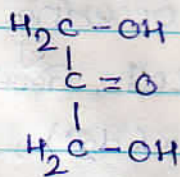 H₂C-OH
C=O
H₂C-OH